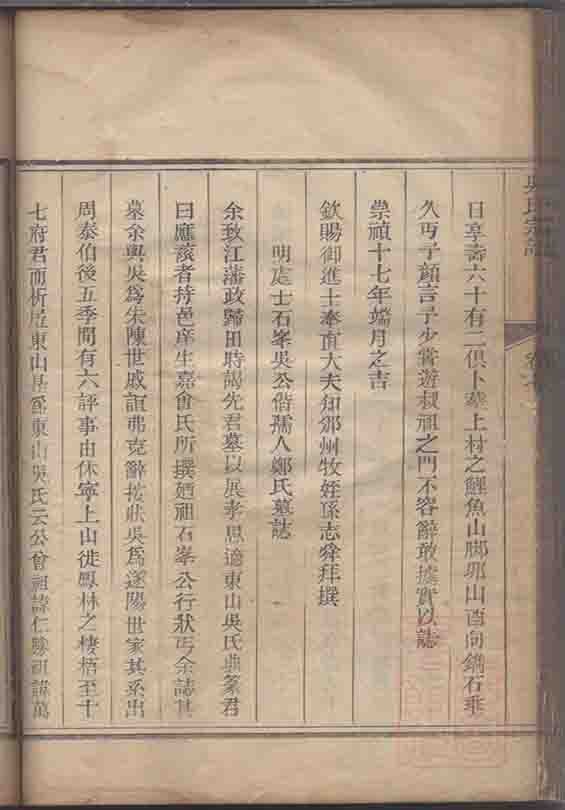 吳氏宗譜 卷十
日享壽六十有二俱卜葬上村之鯉魚山脚卯山酉向鐫石垂
久丐予顏言予少嘗遊叔祖之門不容辭敢據實以誌
崇禎十七年端月之吉
欽賜御進士奉直大夫知邠州牧姪孫志舜拜撰
明處士石峯吳公偕孺人鄭氏墓誌
余致江藩政歸田時謁先君墓以展孝思適東山吳氏典篆君
曰應該者持邑庠生嘉會氏所撰廼祖石峯公行狀丐余誌其
墓余與吳為朱陳世戚誼弗克辭按狀吳為遂陽世家其系出
周泰伯後五季間有六評事由休寧上山徙鳳林之棲梧至十
七府君而析居東山基為東山吳氏云公曾祖諱仁勝祖諱萬